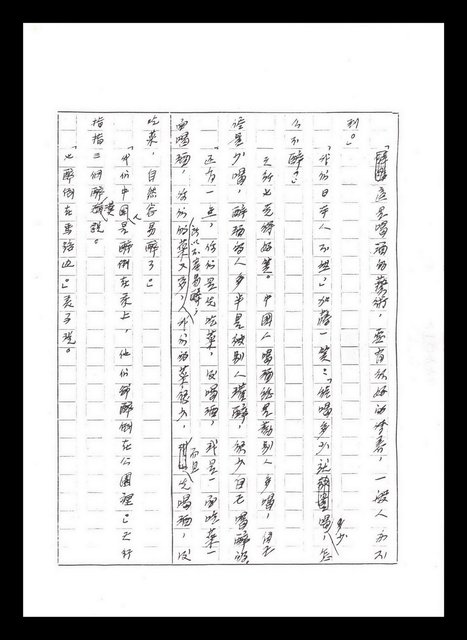 這是喝酒的藝術，要有很好的修養，一般人辦不
到。」
「我們日本人不想」加藤一笑：「能喝多少就喝多少，怎
么不醉？」
之行也覺得好笑。中國人喝酒總是勸別人多喝，自己
儘量少喝，醉酒的人多半是被別人灌醉，很少自己喝醉的。
「還有一点，你們是先吃菜，後喝酒，或是一面吃菜一
面喝酒，你們的菜又多，所以不容易醉，我們的菜很少，而且先喝酒，後
吃菜，自然容易醉了。」
「我們中國人是醉倒在桌上，他們卻醉倒在公園裡。」之行
指指三個醉漢說。
「也醉倒在馬路边。」美子說。